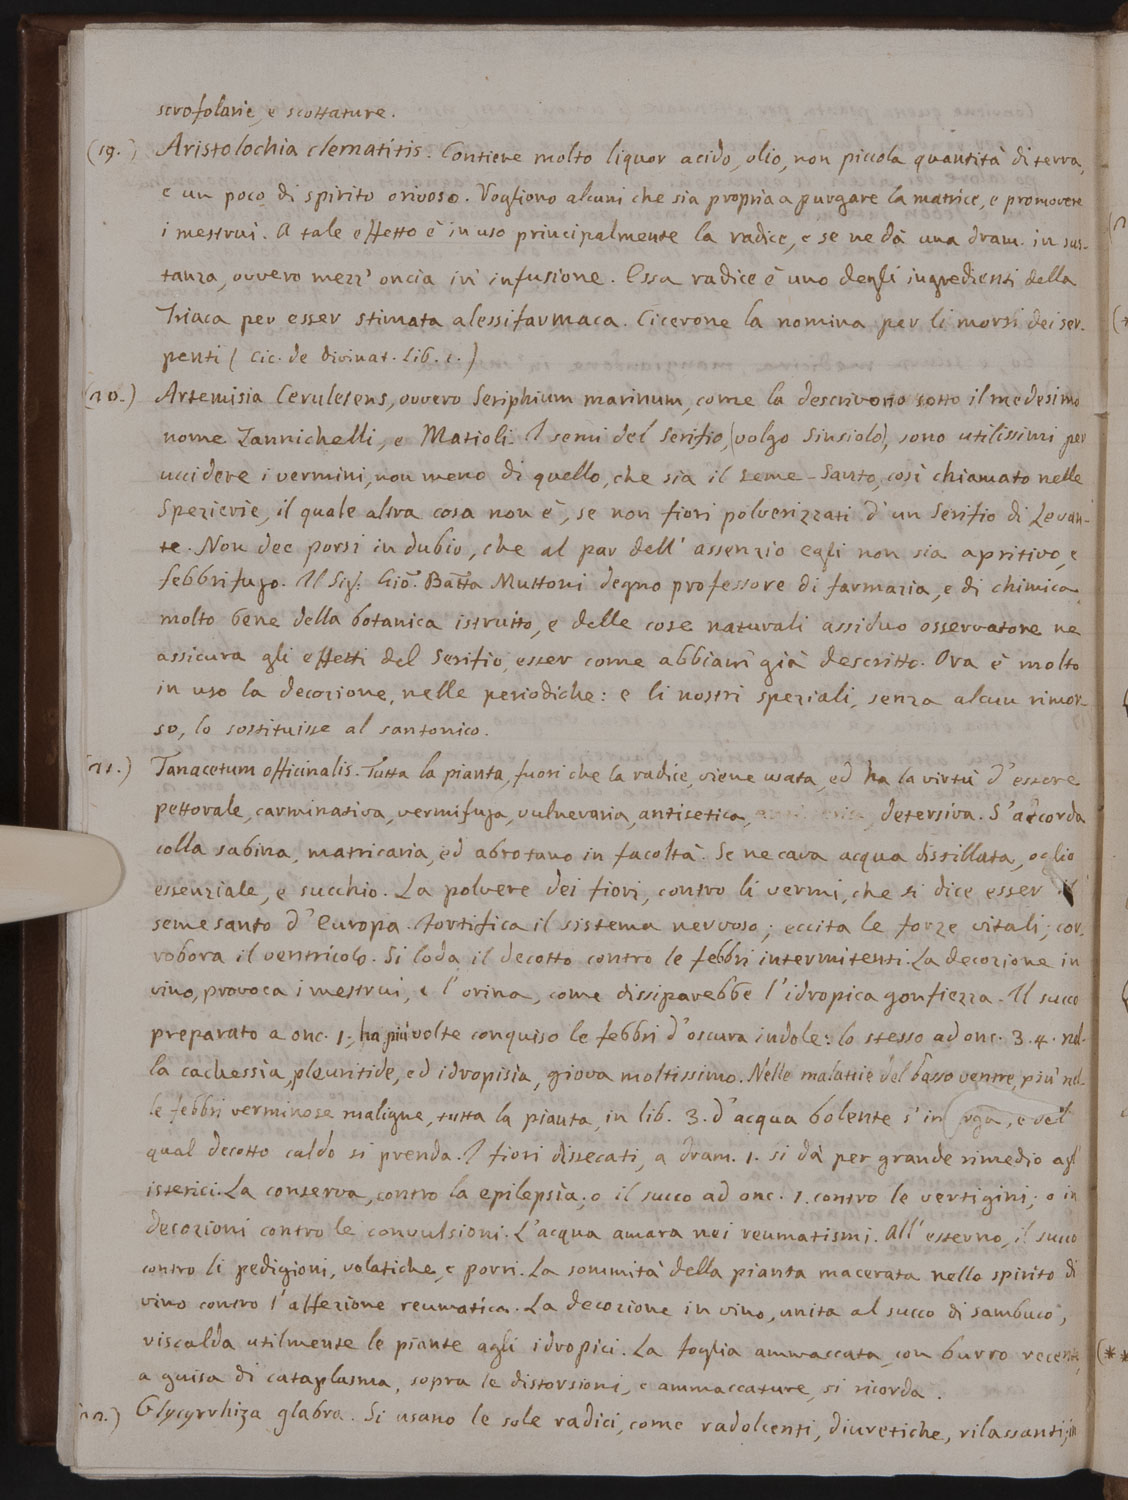 scrofolarie, e scottature.
(19.) Aristolochia clematitis. Contiene molto liquor acido, olio, non piccola quantità di terra,
e un poco di spirito orinoso. Vogliono alcuni che sia propria a purgare la matrice, e promovere
i mestrui. A tale effetto è in uso principalmente la radice, e se ne dà una dram. in sus-
tanza, ovvero mezz' oncia in infusione. Essa radice è uno degli ingredienti della
Triaca per esser stimata alessifarmaca. Cicerone la nomina per li morsi dei ser-
penti (Cic. de Divinat. Lib. 1.)
(20.) Artemisia Cerulesens, ovvero Seriphium marinum, come la descrivono sotto il medesimo
nome Zannichelli, e Matioli. I semi del Serifio, (volgo Sinsiolo), sono utilissimi per
uccidere i vermini, non meno di quello, che sia il seme-Santo, così chiamato nelle
Spezierie, il quale altra cosa non è, se non fiori polverizzati d'un Serifio di Levan-
te. Non dee porsi in dubio, che al par dell' assenzio egli non sia apritivo, e
febbrifugo. Il Sig. Gio. Batta Muttoni degno professore di farmazia, e di chimica,
molto bene della botanica istruito, e delle cose naturali assiduo osservatore ne
assicura gli effetti del Serifio, esser come abbiam già descritto. Ora è molto
in uso la decozione, nelle periodiche: e li nostri speziali, senza alcun rimor-
so, lo sostituisse al santonico.
(21.) Tanacetum officinalis. Tutta la pianta, fuori che la radice, viene usata, ed ha la virtù d'essere
pettorale, carminativa, vermifuga, vulneraria, antisetica, detersiva. S'accorda
colla sabina, matricaria, ed abrotano in facoltà. Se ne cava acqua distillata, oglio
essenziale, e succhio. La polvere dei fiori, contro li vermi, che si dice esser il
semesanto d'Europa. Fortifica il sistema nervoso; eccita le forze vitali; cor-
robora il ventricolo. Si loda il decotto contro le febbri intermitenti. La decozione in
vino, provoca i mestrui, e l'orina, come dissiparebbe l'idropica gonfiezza. Il succo
preparato a onc. 1. ha più volte conquiso le febbri d'oscura indole: lo stesso ad onc. 3.4. nel-
la cachessia, pleuritide, ed idropisia, giova moltissimo. Nelle malattie del basso ventre, più nel-
le febbri verminose maligne, tutta la pianta, in lib. 3. d'acqua bolente s'in, e del
qual decotto caldo si prenda. I fiori dissecati, a dram. 1. si dà per grande rimedio agl'
isterici. La conserva, contro la epilepsia; o il succo ad onc. 1. contro le vertigini; o in
decozioni contro le convulsioni. L'acqua amara nei reumatismi. All' esterno, il succo
contro li pedigioni, volatiche, e porri. La sommità della pianta macerata nello spirito di
vino contro l'affezione reumatica. La decozione in vino, unita al succo di sambuco,
riscalda utilmente le piante agli idropici. La foglia ammaccata, con burro recente,
a guisa di cataplasma, sopra le distorsioni, e ammaccature, si ricorda.
(22.) Glycyrrhiza glabra. Si usano le sole radici, come radolcenti, diuretiche, rilassanti; in
(**